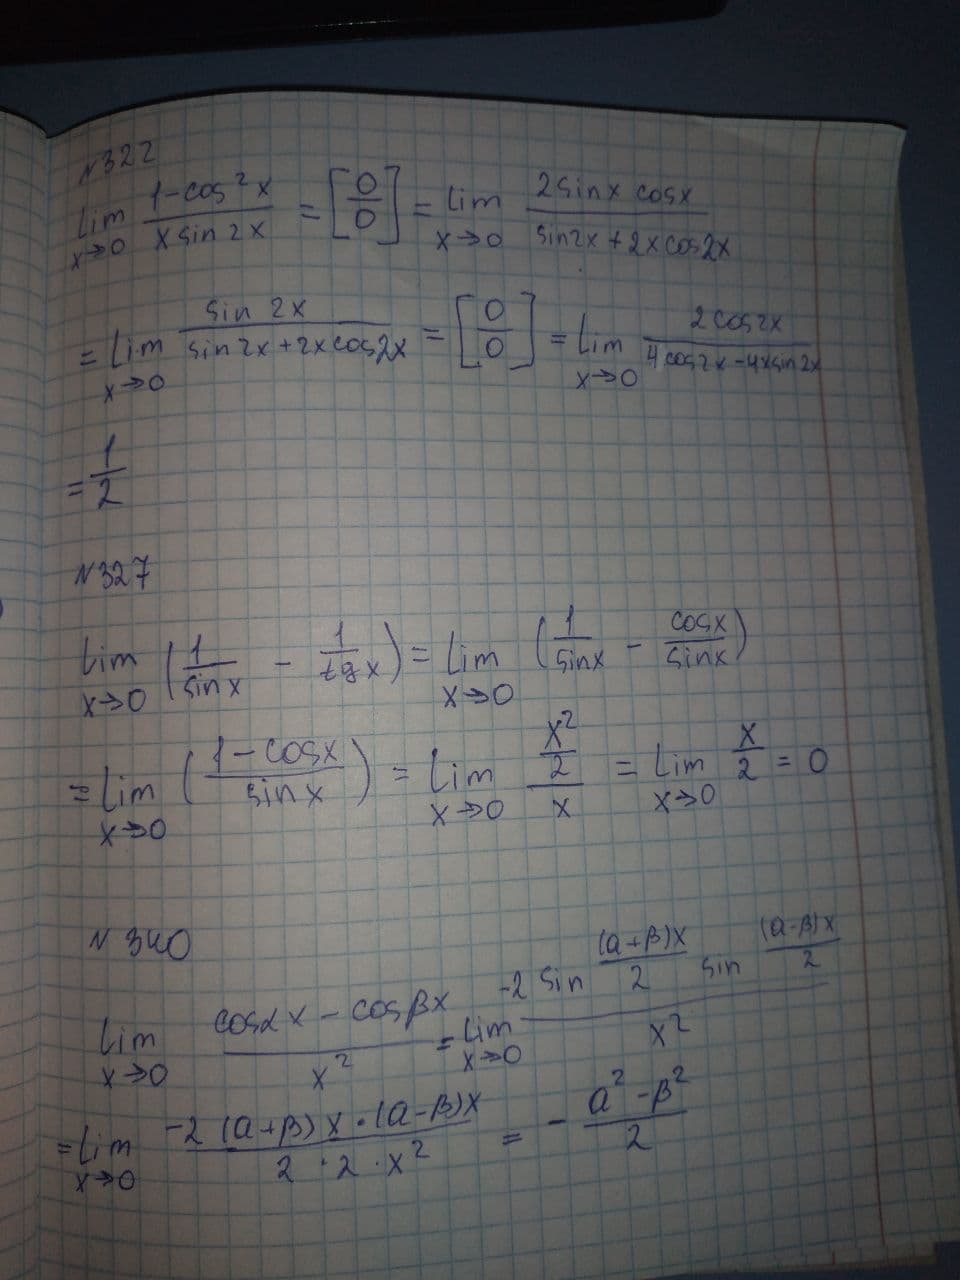 №322
lim x→0 (1-cos²x)/(x sin 2x) = [0/0] = lim x→0 (2 sinx cosx)/(sin2x + 2x cos2x)
= lim x→0 (sin 2x)/(sin 2x + 2x cos2x) = [0/0] = lim x→0 (2 cos2x)/(4 cos2x - 4x sin 2x)
= 1/2
№327
lim x→0 (1/sin x - 1/tg x) = lim x→0 (1/sinx - cosx/sinx)
= lim x→0 ((1-cosx)/sin x) = lim x→0 (x²/2)/x = lim x→0 x/2 = 0
№340
lim x→0 (cosαx - cosβx)/x² = lim x→0 (-2 sin (a+β)x/2 sin (a-β)x/2)/x²
= lim x→0 (-2 (a+β)x · (a-β)x)/(2 · 2 · x²) = - (a²-β²)/2